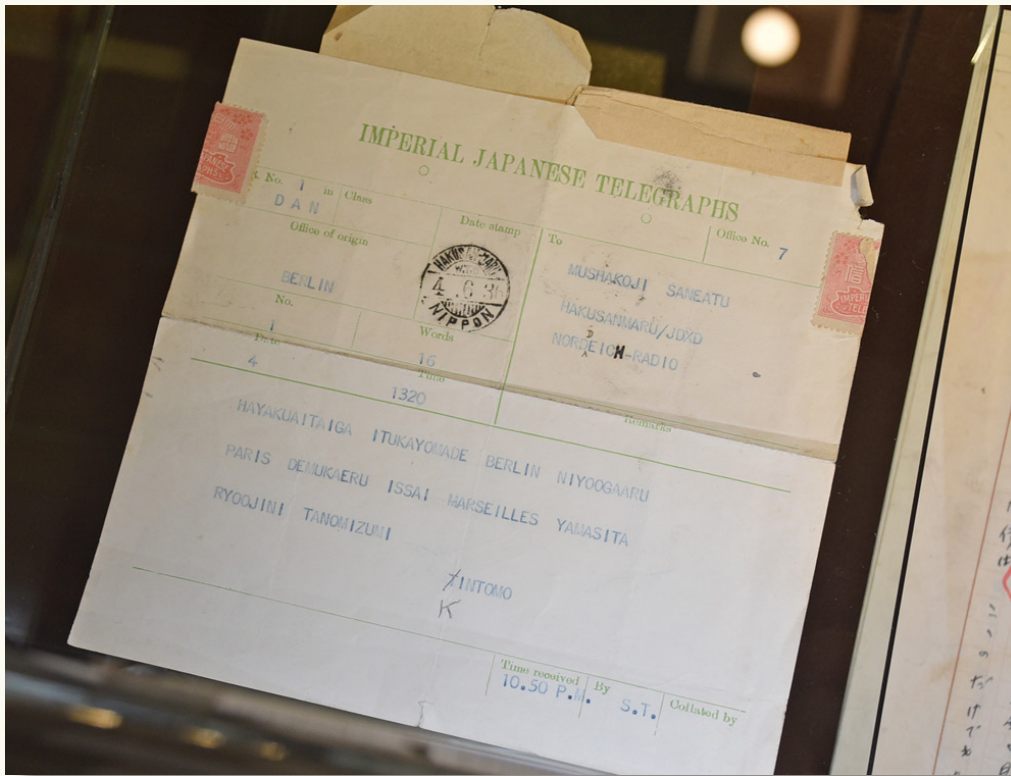 IMPERIAL JAPANESE TELEGRAPHS
No. 1 in Class
DAN
Office of origin
BERLIN
Date stamp
HAKUSANMARU
4.6.36
NIPPON
No.
1
Words
16
Date
4
Time
1320
To
Office No. 7
MUSHAKOJI SANEATU
HAKUSANMARU/JDXD
NORDEICH-RADIO
D
Remarks
HAYAKUAITAIGA ITUKAYOMADE BERLIN NIYOOGAARU
PARIS DEMUKAERU ISSAI MARSEILLES YAMASITA
RYOOJINI TANOMIZUMI
ZINTOMO
K
Time received
10.50 P.M.
By
S.T.
Collated by
信
IMPERI
だけでも